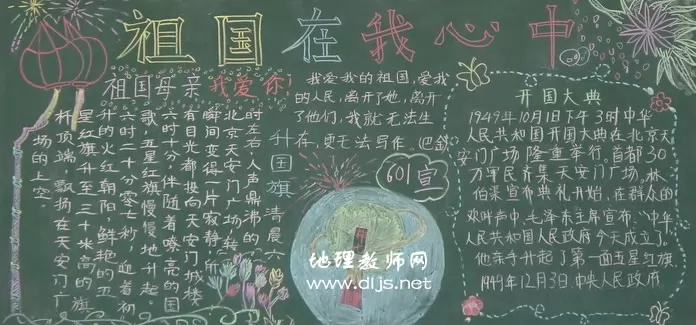 祖国在我心中
祖国母亲 我爱你！
我爱我的祖国，爱我
的人民，离开了她，离开
了他们，我就无法生
存，更无法写作。巴金
升国旗
清晨六
时左右，人声鼎沸的
北京天安门广场转
瞬间变得一片寂静，所
有目光都投向天安门城楼
六时十分，伴随着嘹亮的国
歌，五星红旗慢慢地升起。
六时二十分零七秒，迎着初
升的火红朝阳，鲜艳的五
星红旗升至三十米高的旗
杆顶端，飘扬在天安门广
场的上空。
601宣
开国大典
1949年10月1日下午3时中华
人民共和国开国大典在北京天
安门广场隆重举行。首都30
万军民齐集天安门广场。林
伯渠宣布典礼开始，在群众的
欢呼声中，毛泽东主席宣布，“中华
人民共和国人民政府今天成立。”
他亲手升起了第一面五星红旗。
1949年12月3日中央人民政府
地理教师网
www.dljs.net